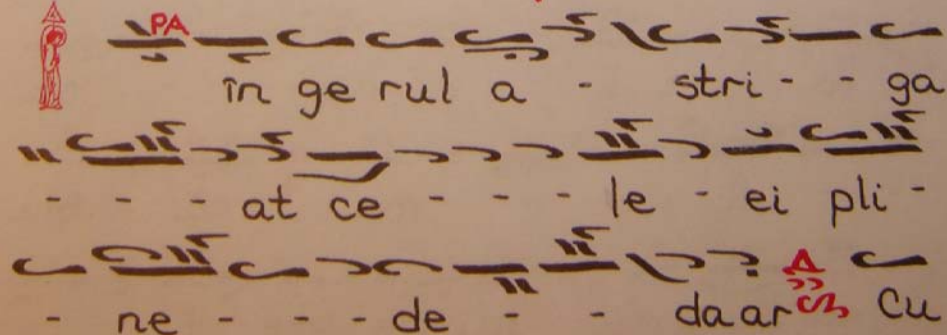 PA
în ge rul a - stri - - ga
- - - at ce - - - le - ei pli -
- ne - - - de - - da ar Δ Cu